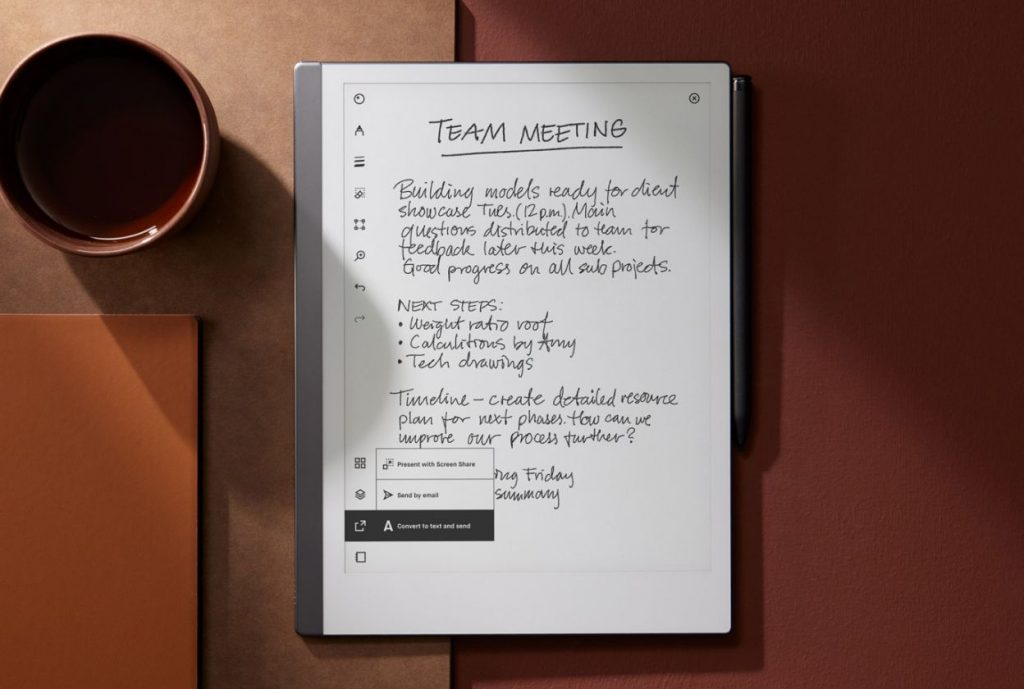 TEAM MEETING
Building models ready for client
showcase Tues. (12 p.m). Main
questions distributed to team for
feedback later this week.
Good progress on all sub projects.
NEXT STEPS:
• Weight ratio roof
• Calculitions by Amy
• Tech drawings
Timeline – create detailed resource
plan for next phases. How can we
improve our process further?
Present with Screen Share
Friday
Send by email
summary
Convert to text and send